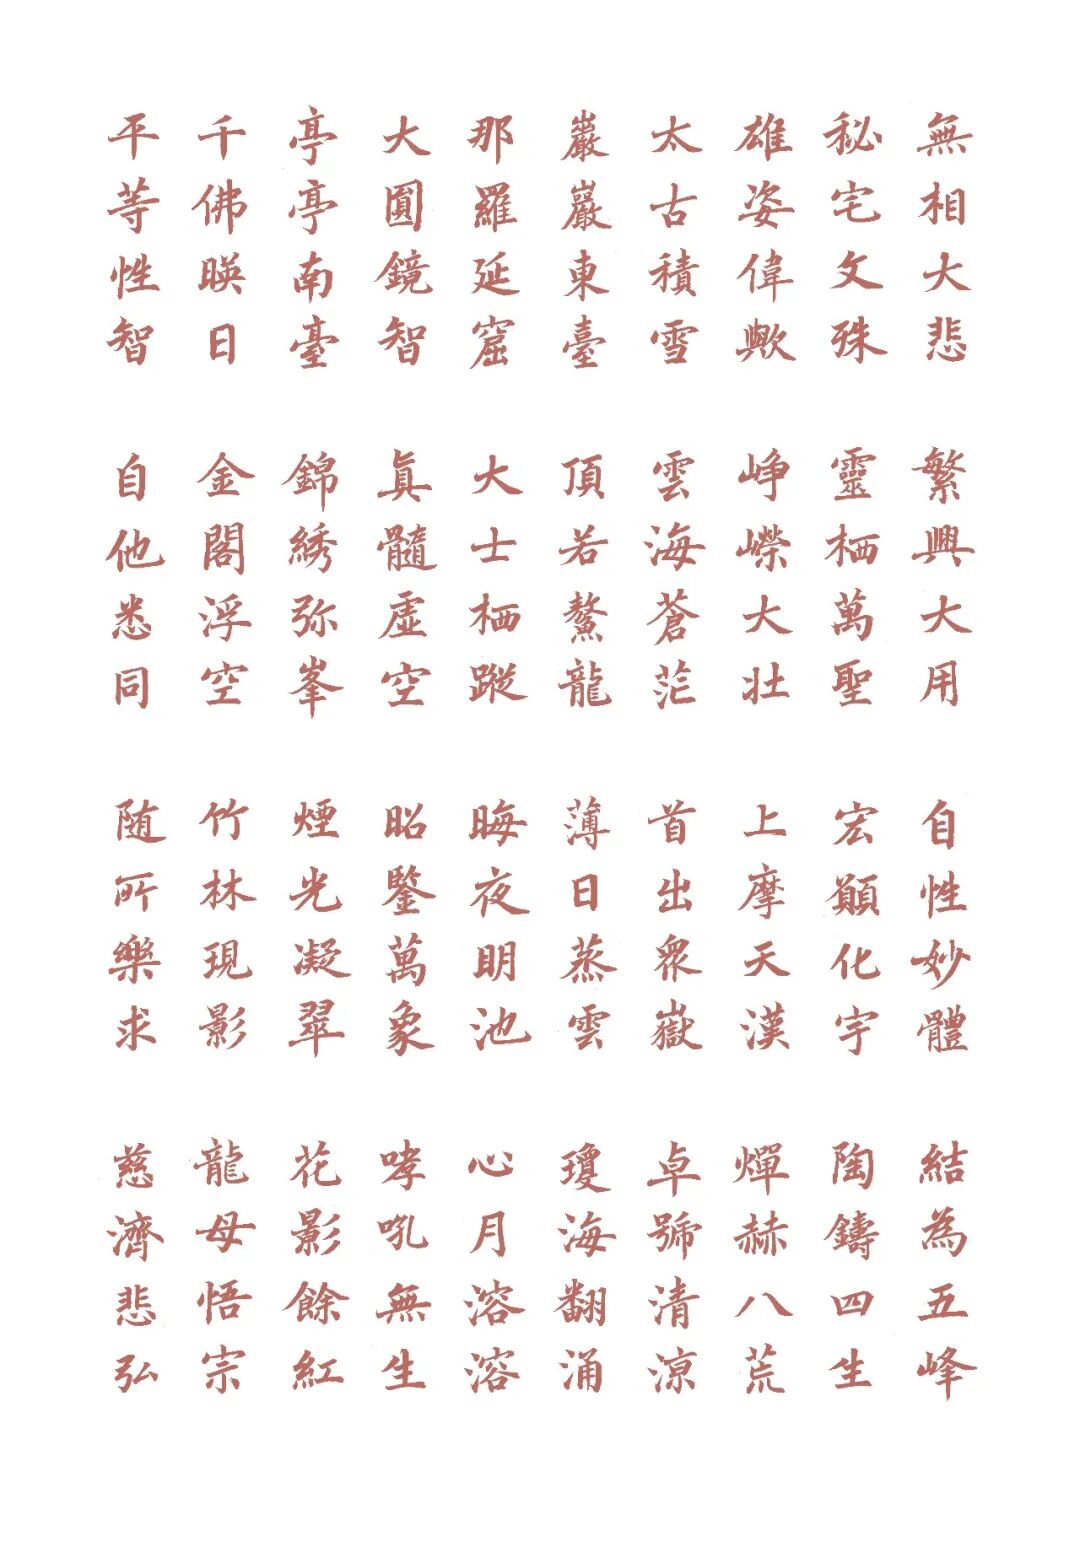 無相大悲 繁興大用 自性妙體 結為五峰
秘宅文殊 靈栖萬聖 宏願化宇 陶鑄四生
雄姿偉歟 崢嶸大壯 上摩天漢 燀赫八荒
太古積雪 雲海蒼茫 首出眾嶽 卓號清涼
巖巖東臺 頂若鰲龍 薄日蒸雲 瓊海翻涌
那羅延窟 大士栖蹤 晦夜明池 心月溶溶
大圓鏡智 眞髓虛空 昭鑒萬象 哮吼無生
亭亭南臺 錦綉弥峯 煙光凝翠 花影餘紅
千佛暎日 金閣浮空 竹林現影 龍母悟宗
平等性智 自他悉同 随所樂求 慈濟悲弘